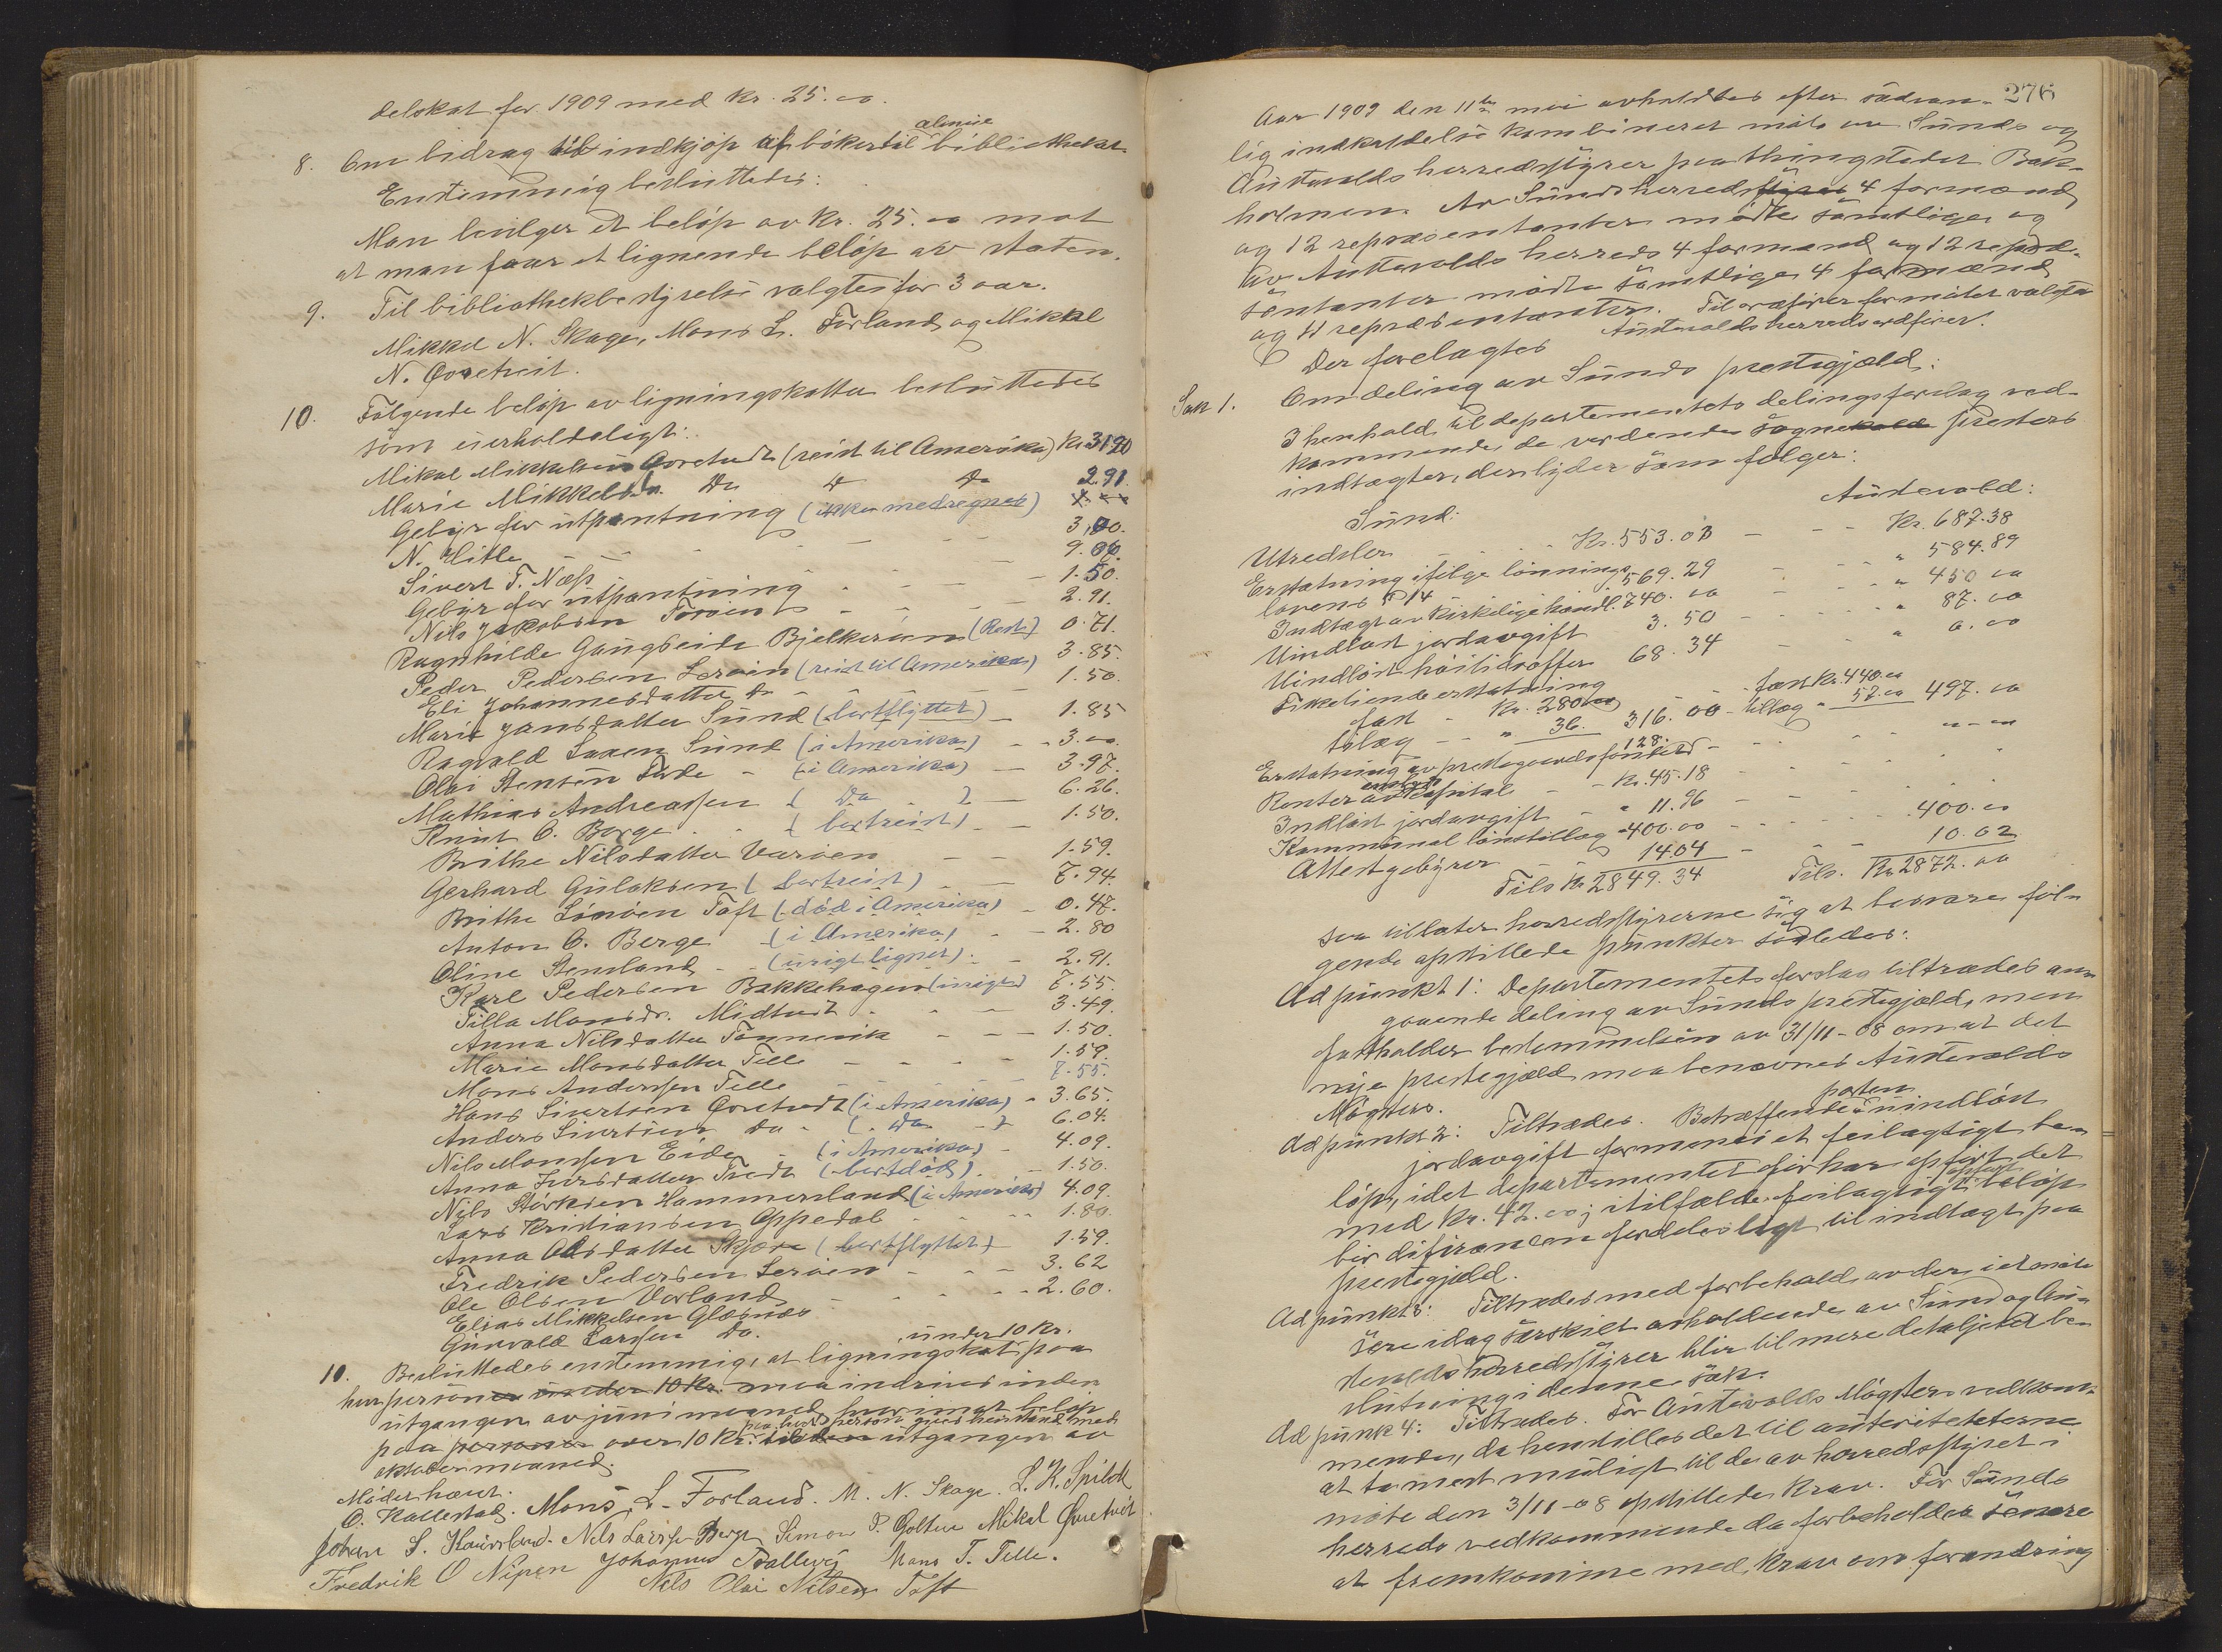 delskat for 1909 med kr. 25.00.
8. Om bidrag til indkjøp af bøker til almue bibliotheket.
Enstemmig besluttedes:
Man bevilger et beløp av kr. 25.00 mot
at man faar et lignende beløp av staten.
9. Til bibliothekbestyrelse valgtes for 3 aar.
Mikkel N. Skage, Mons L. Forland og Mikkel
N. Qvretveit.
10. Følgende beløp av ligningskatter besluttedes
som uerholdeligt:
Mikal Mikkelsen Qvretvedt (reist til Amerika) Kr. 31.20
Marie Mikkelsdr. Do Do Do 2.91.
Gebyr for utpantning (ikke medregnes)
N. Hitle 3,00.
Sivert T. Næss 9.06.
Gebyr for utpantning 1.50.
Nils Jakobsen Toroien 2.91.
Ragnhilde Gangseide Bjelkerøen (Rest) 0.71.
Peder Pedersen Lerøen (reist til Amerika) 3.85.
Eli Johannesdatter Do 1.50.
Marie Jansdatter Sund (bortflyttet) 1.85
Ragvald Laxen Sund (i Amerika) 3.00.
Olai Stensen Tede (i Amerika) 3.97.
Mathias Andreassen (Do) 6.26.
Knut O. Berge (bortreist) 1.50.
Brithe Nilsdatter Vedøen 1.59.
Gerhard Gulaksen (bortreist) 7.94.
Brithe Larsen Toft (død i Amerika) 0.47.
Anton O. Berge (i Amerika) 2.80
Oline Stensland (urigt lignet) 2.91.
Karl Pedersen Bakkehagen (urigt) 7.55.
Tilla Monsdr. Midtvedt 3.49.
Anna Nilsdatter Tømmervik 1.50.
Marie Monsdatter Telle 1.59.
Mons Anderssen Telle 7.55.
Hans Sivertsen Qvretvedt (i Amerika) 3.65.
Anders Sivertsen Do (Do) 6.04.
Nils Monssen Eide (i Amerika) 4.09.
Anna Larsdatter Tredt (bortdød) 1.50.
Nils Størksen Hammersland (i Amerika) 4.09.
Lars Kristiansen Oppedal 1.80.
Anna Olsdatter Skjære (bortflyttet) 1.59.
Fredrik Pedersen Lerøen 3.62
Ole Olsen Vorland 2.60.
Elias Mikkelsen Glesnæs
Gunvald Larssen Do.
10. Besluttedes enstemmig, at ligningskat paa under 10 Kr.
hver personer under 10 Kr. maa indrives inden
utgangen av juni maaned, hvorimot beløp
paa personer over 10 Kr. paa hver person gives henstand med til den utgangen av
oktober maaned.
Mødet hævet.
O. Kallestad. Mons L. Forland. M. N. Skage. L. K. Spilde
Johan S. Kausland. Nils Larssen Berge Simon P. Golten Mikal Qvretvit
Fredrik O Nipen Johannes Trallevej Mons T. Telle.
Nils Olai Nilsen Toft
276
Aar 1909 den 11te mai avholdtes efter sædvan-
lig indkaldelse kombineret møte av Sunds og
Austevolds herredsstyrer paa thingstedet Bak-
holmen. Av Sunds herredsstyres 4 formænd
og 12 repræsentanter mødte samtlige og
av Austevolds herreds 4 formænd og 12 repræ-
sentanter mødte samtlige 4 formænd
og 11 repræsentanter. Til ordfører for møtet valgtes
Austevolds herreds ordfører.
Der forelagtes
Sak 1. Om deling av Sunds prestegjæld:
I henhold til departementets delingsforslag ved-
kommende de vordende sognekald presters
indtægter, der lyder som følger:
Sund: Austevold:
Utredsler Kr. 553.03 Kr. 687.38
Erstatning ifølge lønnings-
lovens § 14 569.29 " 584.89
Indtægt av kirkelige handl. 740.00 " 450.00
Uindløst jordavgift 3.50 " 87.00
Uindløst høitidsoffer 68.34 " 0.00
Fisketiende erstatning
fast Kr. 280.00 fast Kr. 440.00
tillæg " 36. 316.00 tillæg " 57.00 497.00
Erstatning av prestegaardsfondet 128.
Renter av kapital Kr. 45.18
Indløst jordavgift " 11.96
Kommunal lønstillæg 400.00 400.00
Attestgebyrer 14.04 10.02
Tils Kr. 2849.34 Tils. Kr. 2872.00
saa tillater herredsstyrerne sig at besvare føl-
gende opstillede punkter saaledes:
Ad punkt 1: Departementets forslag tiltrædes an-
gaaende deling av Sunds prestegjæld, men
fastholder bestemmelsen av 3/11-08 om at det
nye prestegjæld maa benævnes Austevolds
Møgster.
Ad punkt 2: Tiltrædes. Betræffende posten uindløst
jordavgift formenes et feilagtigt be-
løp, idet departementet før har opført det
med Kr. 42.00; i tilfælde feilagtigt opført beløp
bør differansen fordeles ligt til indtægt paa
prestegjæld.
Ad punkt 3: Tiltrædes med forbehold av der i et møte
sere idag særskilt avholdende av Sund og Au-
stevolds herredsstyrer blir til mere detaljeret be-
slutning i denne sak.
Ad punk 4: Tiltrædes. For Austevolds Møgster vedkom-
mende, da henstilles det til autoriteterne
at ta mest muligt til de av herredsstyret i
møte den 3/11-08 opstillede krav. For Sunds
herreds vedkommende da forbeholdes senere
at fremkomme med krav om forandring